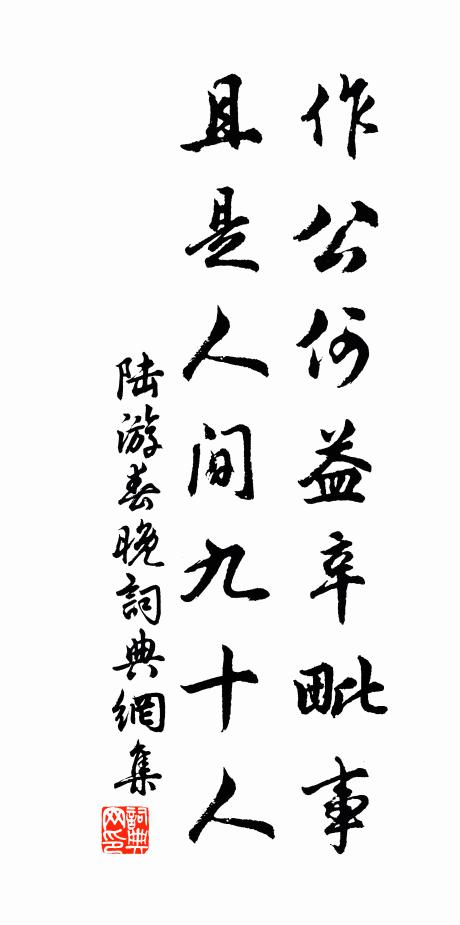 作公何益辛毗事
且是人间九十人
陆游春晚詞典網集
詞典網印